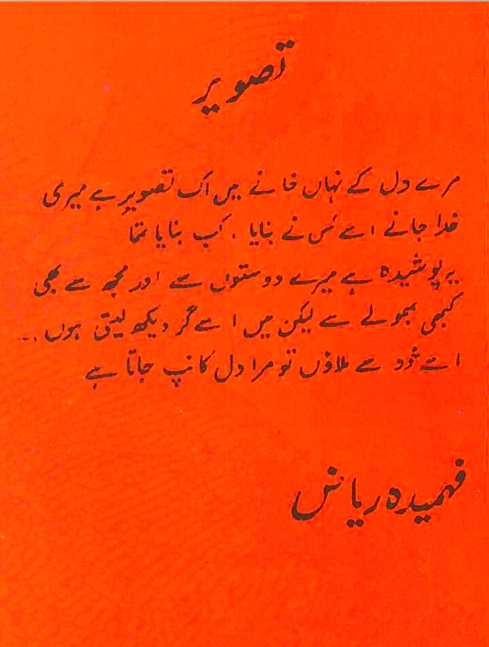 تصویر
مرے دل کے نہاں خانے میں اک تصویر ہے میری
خدا جانے اسے کس نے بنایا ، کب بنایا تھا
یہ پوشیدہ ہے میرے دوستوں سے اور مجھ سے بھی
کبھی بھولے سے لیکن میں اسے گر دیکھ لیتی ہوں ...
اسے خود سے ملاؤں تو مرا دل کانپ جاتا ہے
فہمیدہ ریاض